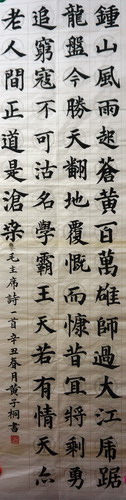 鍾山風雨起蒼黃百萬雄師過大江虎踞
龍盤今勝天翻地覆慨而慷昔宜將剩勇
追窮寇不可沽名學霸王天若有情天亦
老人間正道是滄桒
毛主席詩一首辛丑春月黃子桐書